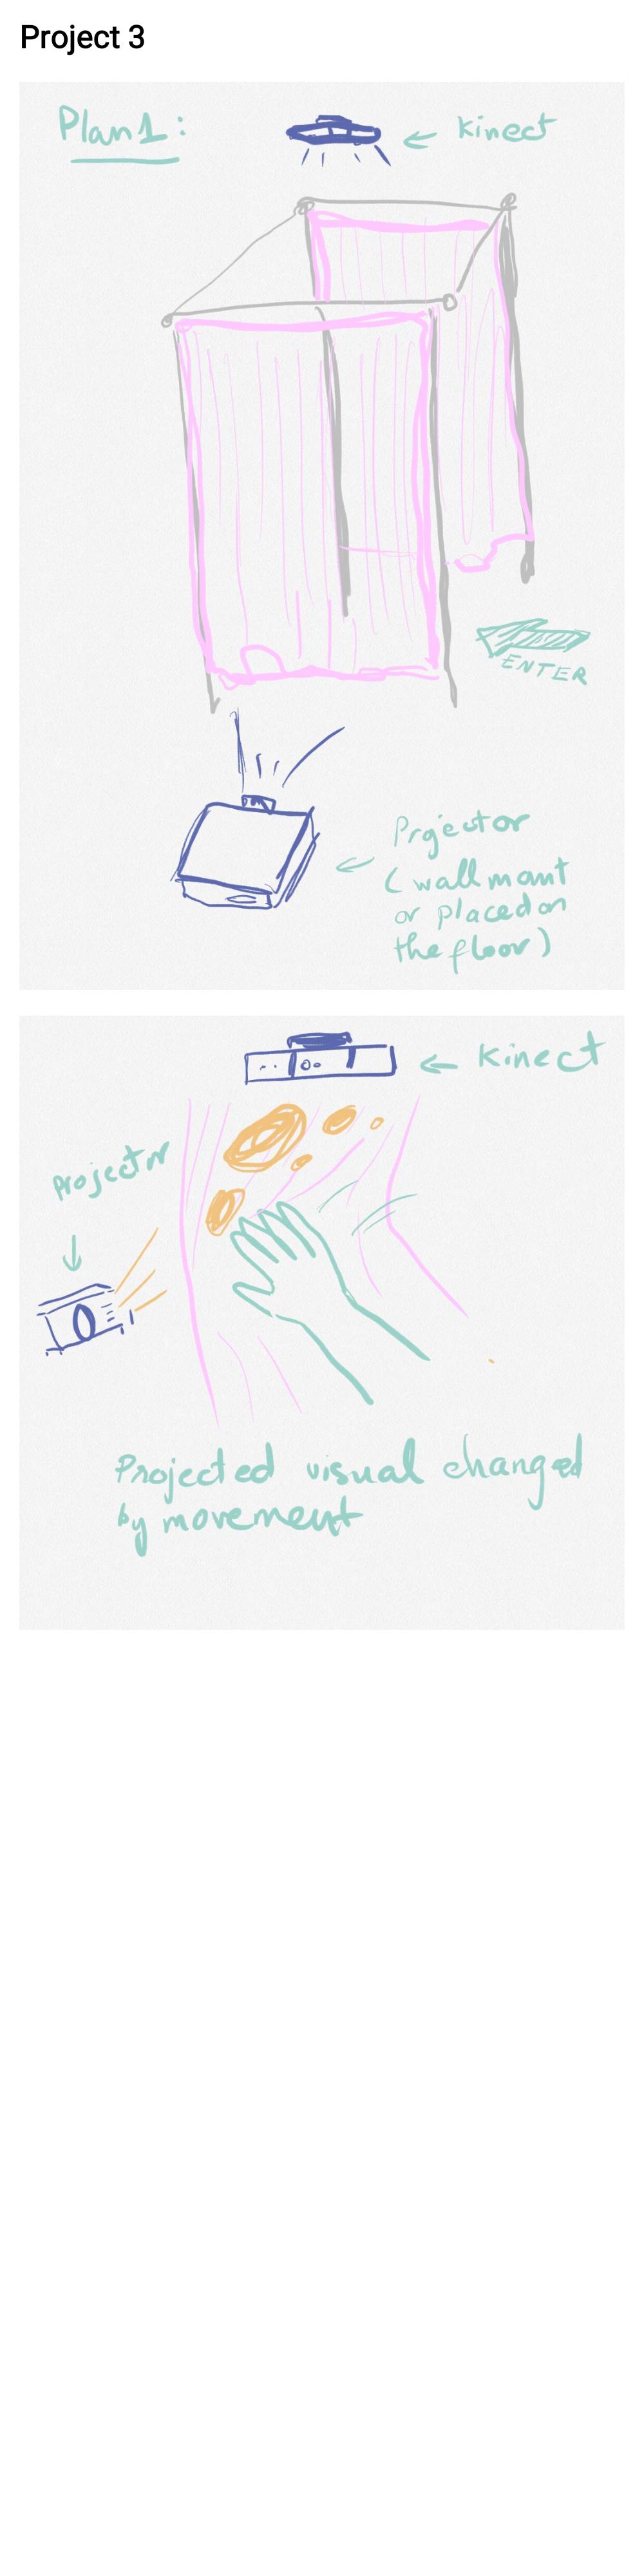 Project 3
Plan 1:
Kinect
ENTER
Prjector
(wall mant
or placed on
the floor)
Kinect
projector
Projected visual changed
by movement